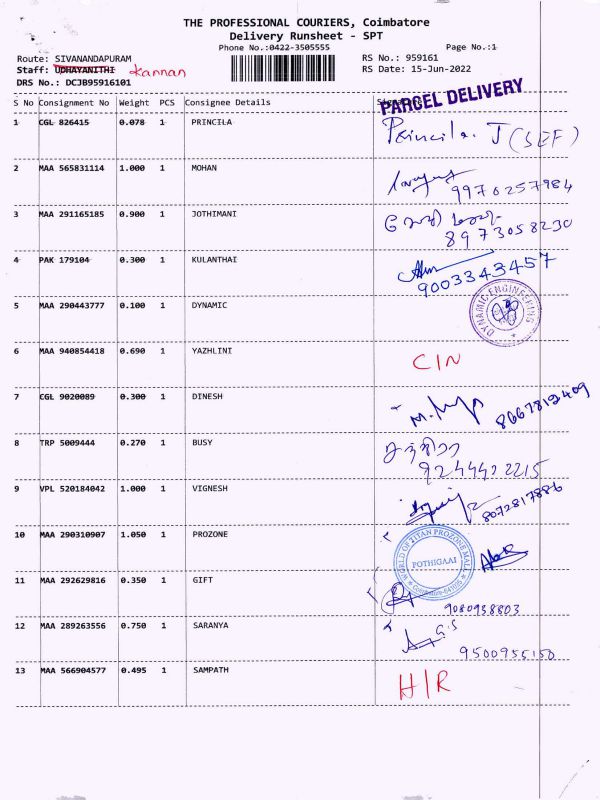 THE PROFESSIONAL COURIERS, Coimbatore
Delivery Runsheet - SPT
Phone No.:0422-3505555
Page No.:1
Route: SIVANANDAPURAM
RS No.: 959161
Staff: UDHAYANITHI Kannan
RS Date: 15-Jun-2022
DRS No.: DCJB95916101
PARCEL DELIVERY
S No Consignment No Weight PCS Consignee Details
1 CGL 826415 0.078 1 PRINCILA Princila. J (SEF)
2 MAA 565831114 1.000 1 MOHAN
9970257984
3 MAA 291165185 0.900 1 JOTHIMANI
8973058230
4 PAK 179104 0.300 1 KULANTHAI
9003343457
5 MAA 290443777 0.100 1 DYNAMIC DYNAMIC ENGINEERING
6 MAA 940854418 0.690 1 YAZHLINI CIN
7 CGL 9020089 0.300 1 DINESH
8 TRP 5009444 0.270 1 BUSY
9 VPL 520184042 1.000 1 VIGNESH
8072817886
10 MAA 290310907 1.050 1 PROZONE WORLD OF TITAN PROZONE MALL
POTHIGAAI
11 MAA 292629816 0.350 1 GIFT
9080958803
12 MAA 289263556 0.750 1 SARANYA
9500955150
13 MAA 566904577 0.495 1 SAMPATH H/R